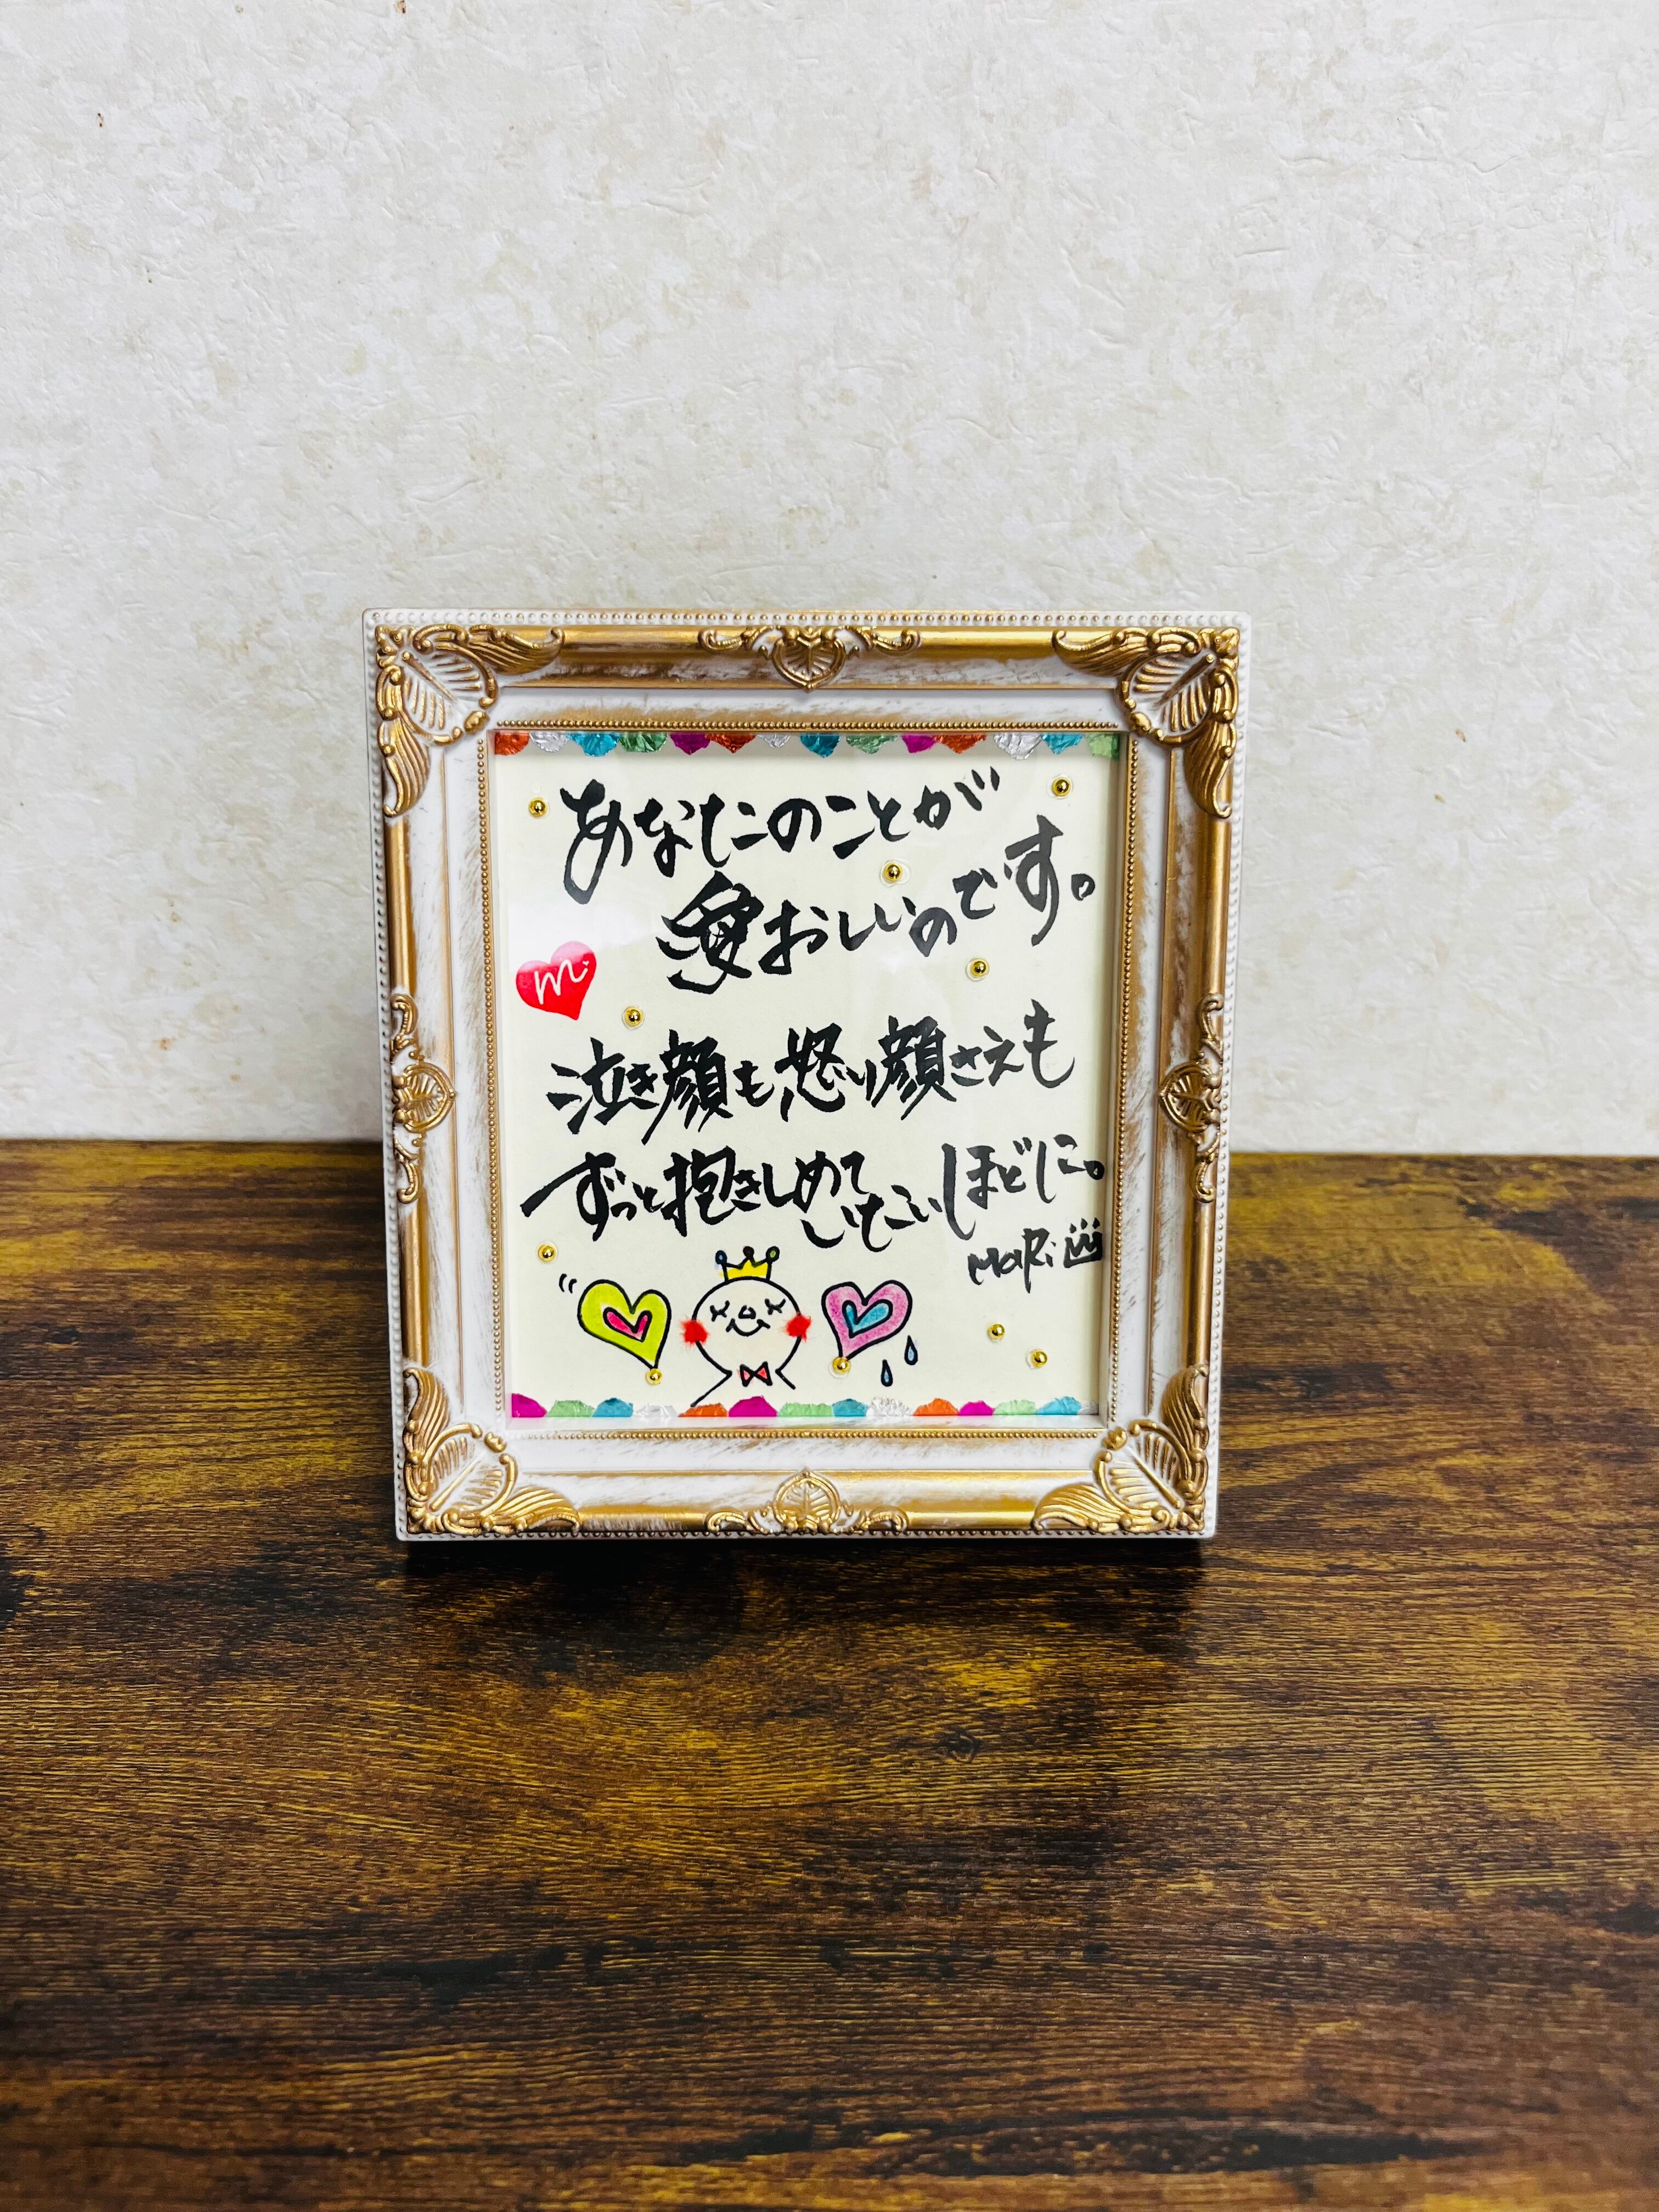 あなたのことが
愛おしいのです。
m.
泣き顔も怒り顔さえも
ずっと抱きしめていたいほどに。
MaRi